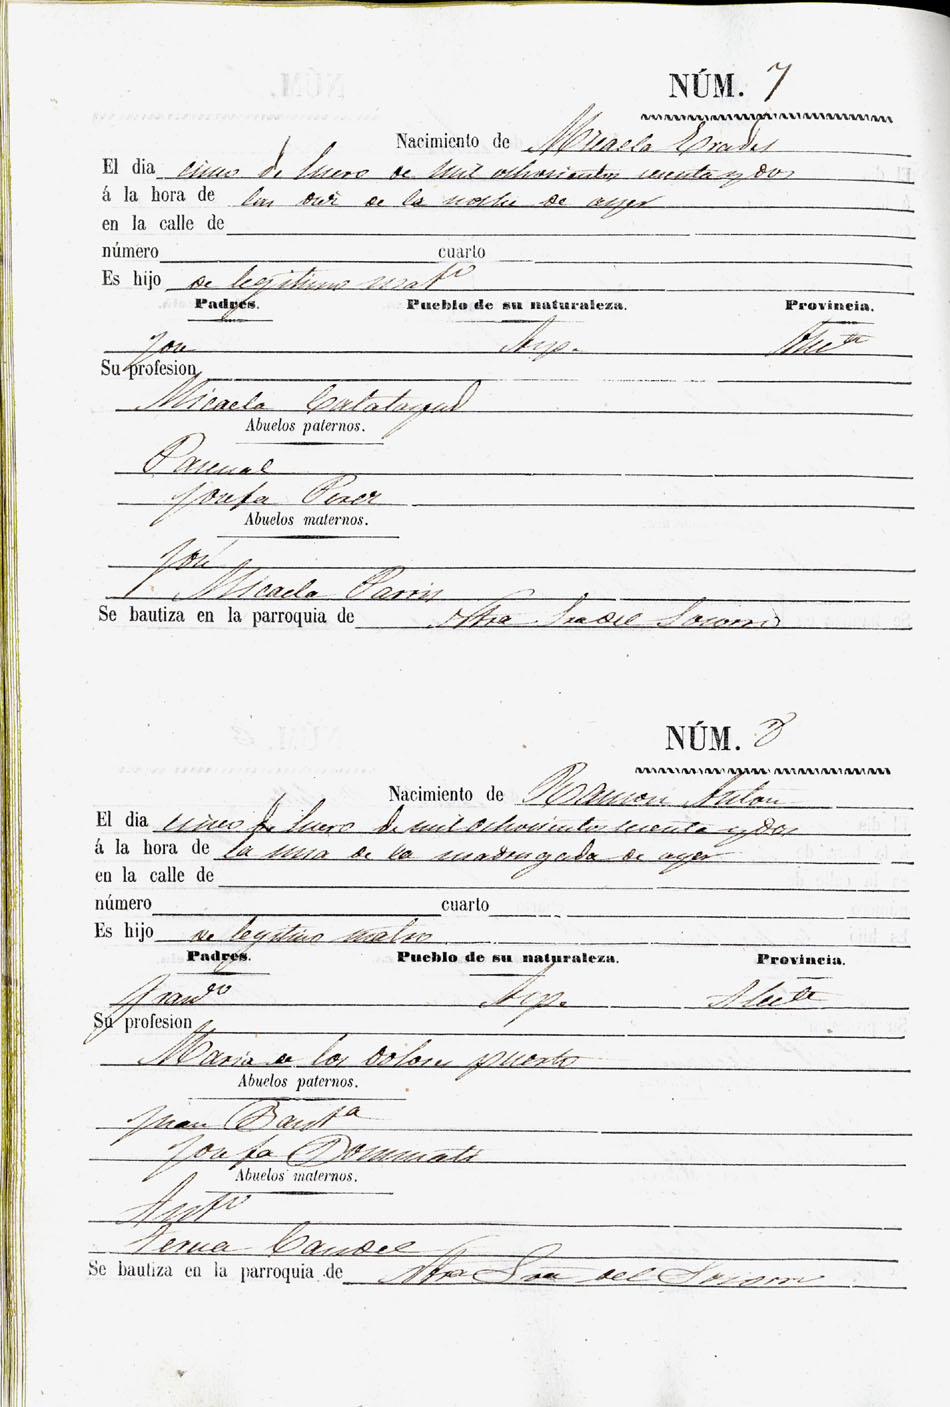 NÚM. 7
Nacimiento de Micaela Erades
El dia cinco de Enero de mil ochocientos cuenta y dos
á la hora de las diez de la noche de ayer
en la calle de
número cuarto
Es hijo de legitimo matº
Padres. Pueblo de su naturaleza. Provincia.
José Asp. Alicte
Su profesion
Micaela Calatayud
Abuelos paternos.
Pascual
Josefa Perez
Abuelos maternos.
José
Micaela
Se bautiza en la parroquia de Ntra Sra del Socorro
NÚM. 8
Nacimiento de Ramon Anton
El dia cinco de Enero de mil ochocientos cuenta y dos
á la hora de la una de la madrugada de ayer
en la calle de
número cuarto
Es hijo de legitimo matrio
Padres. Pueblo de su naturaleza. Provincia.
Franco Asp. Alicte
Su profesion
Maria de los Dolores puerto
Abuelos paternos.
Juan Bautta
Josefa
Abuelos maternos.
Antº
Teresa Candel
Se bautiza en la parroquia de Ntra Sra del Socorro